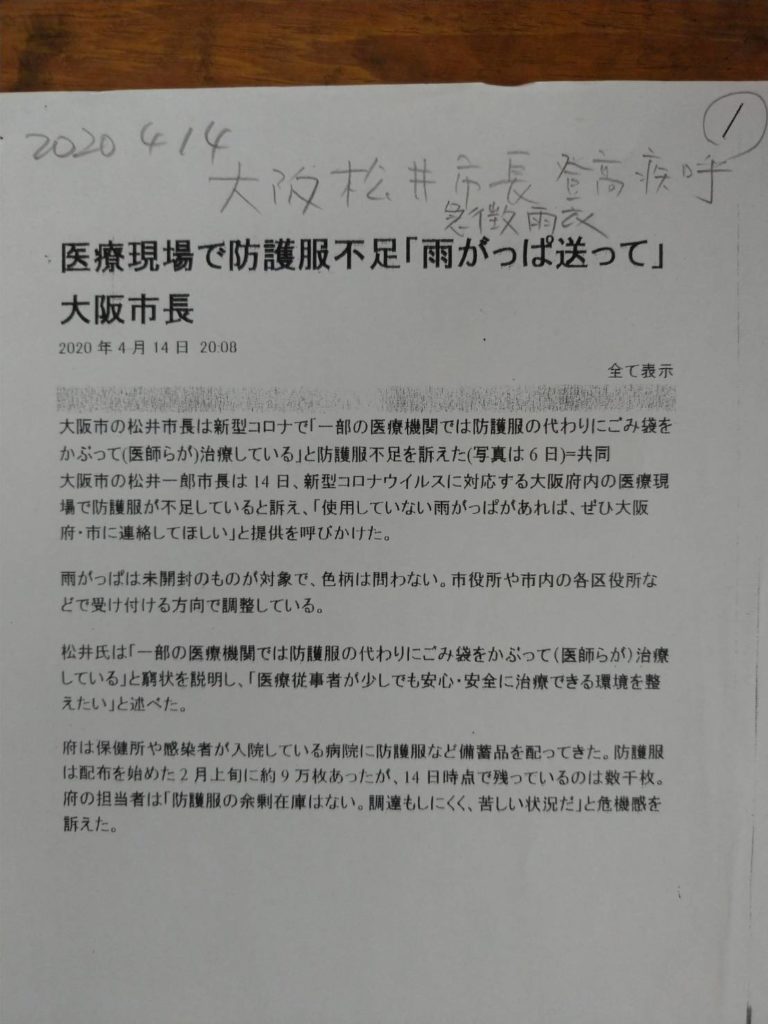 1
2020 4 14
大阪松井市長登高疾呼
急徵雨衣
医療現場で防護服不足「雨がっぱ送って」
大阪市長
2020 年 4 月 14 日 20:08
全て表示
大阪市の松井市長は新型コロナで「一部の医療機関では防護服の代わりにごみ袋を
かぶって(医師らが)治療している」と防護服不足を訴えた(写真は 6 日)=共同
大阪市の松井一郎市長は 14 日、新型コロナウイルスに対応する大阪府内の医療現
場で防護服が不足していると訴え、「使用していない雨がっぱがあれば、ぜひ大阪
府・市に連絡してほしい」と提供を呼びかけた。
雨がっぱは未開封のものが対象で、色柄は問わない。市役所や市内の各区役所な
どで受け付ける方向で調整している。
松井氏は「一部の医療機関では防護服の代わりにごみ袋をかぶって(医師らが)治療
している」と窮状を説明し、「医療従事者が少しでも安心・安全に治療できる環境を整
えたい」と述べた。
府は保健所や感染者が入院している病院に防護服など備蓄品を配ってきた。防護服
は配布を始めた 2 月上旬に約 9 万枚あったが、14 日時点で残っているのは数千枚。
府の担当者は「防護服の余剰在庫はない。調達もしにくく、苦しい状況だ」と危機感を
訴えた。